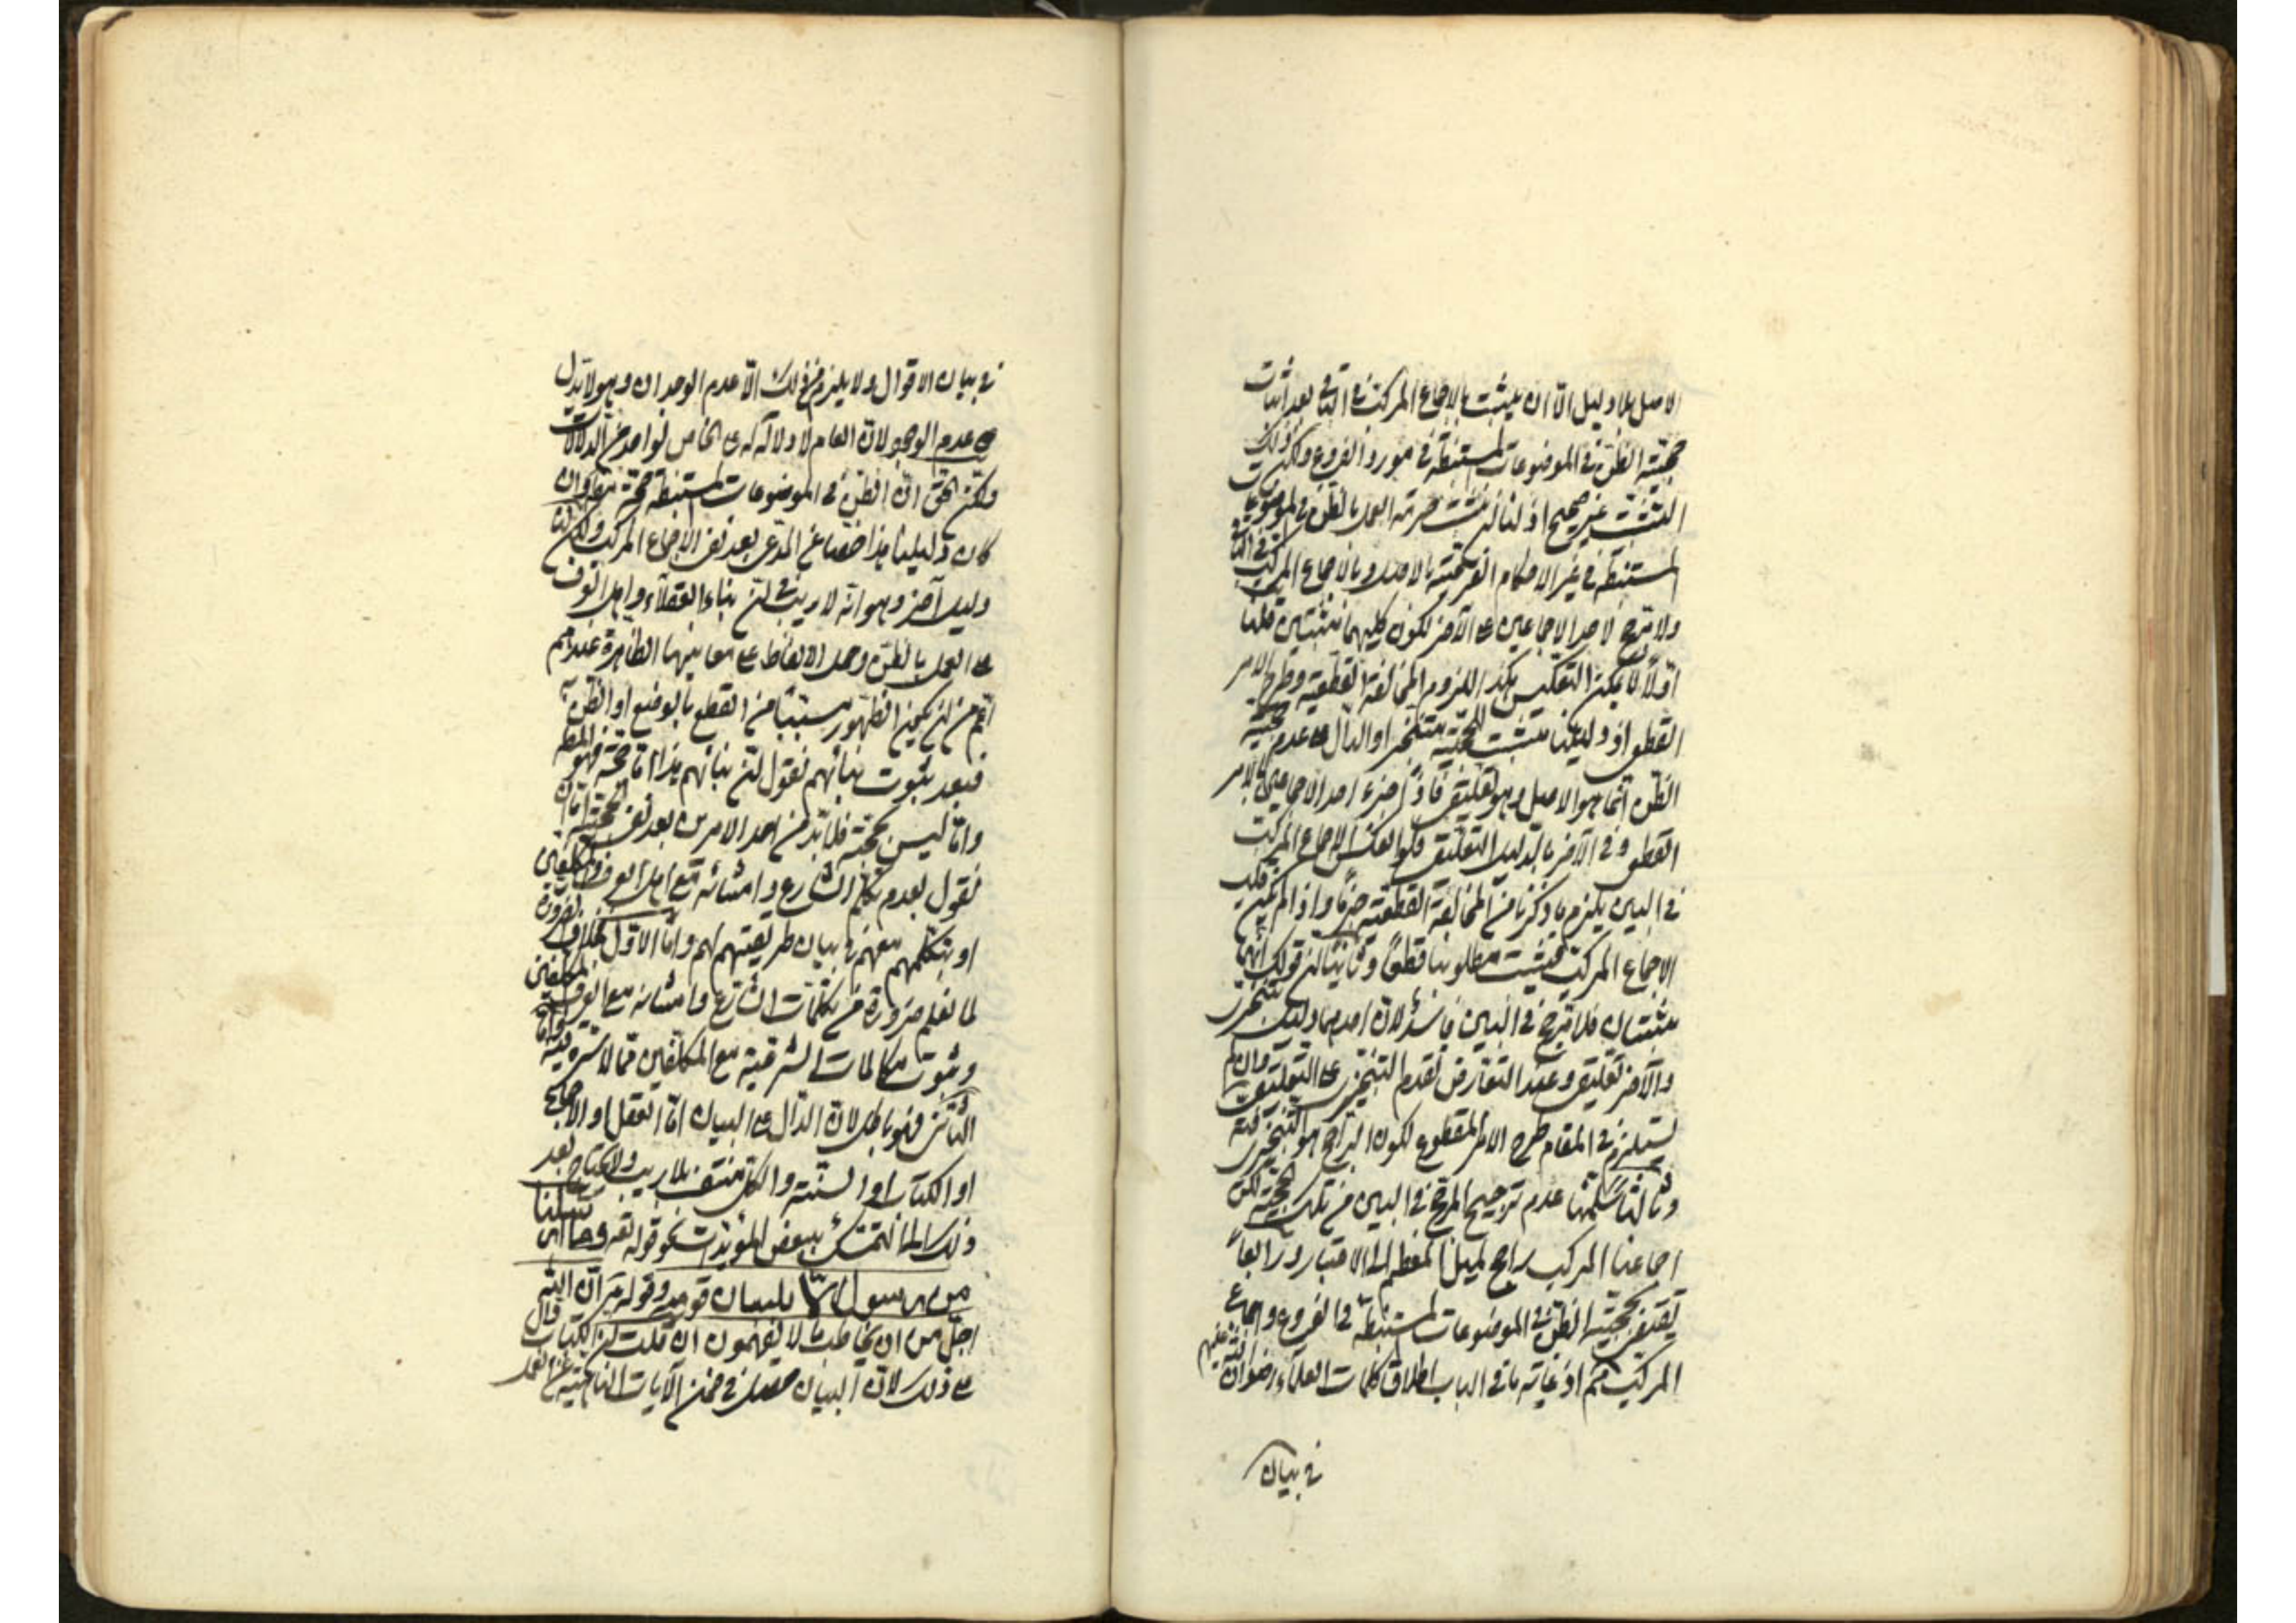 الاصل بلا دليل الّا ان يثبت بالاجماع المركّب فى الباقى بعد اثبات
حجّيّة الظنّ فى الموضوعات المستنبطة فى مورد الفروع ولكن ذلك
التثبّت غير صحيح اذ لنا ان نثبت حرمة العمل بالظنّ فى الموضوعات
المستنبطة فى غير الاحكام الفرعيّة بالاصل وبالاجماع المركّب فى الباقى
ولا ترجيح لاحد الاجماعين على الآخر لكون كليهما مثبتين قلنا
اوّلا لا يمكن التعكيس هكذا للزوم المخالفة القطعيّة وطرح الامر
القطعى اذ دليلنا مثبت الحجّيّة متنجّز او الدالّ على عدم حجّيّة
الظنّ انّما هو الاصل وهو تعليقى فاذًا جزء احد الاجماعين بالامر
القطعى وفى الآخر بالدليل التعليقى فلو انعكس الاجماع المركّب
فى البين يلزم ما ذكرنا من المخالفة القطعيّة جزمًا واذا لم يمكن قلب
الاجماع المركّب فيثبت مطلوبنا قطعًا وثانيا ان قولك انّهما
مثبتان فلا ترجيح فى البين فاسد لان احدهما دليل تنجّزى
والآخر تعليقى وعند التعارض تقدم التنجّزى على التعليقى وان لم
يستلزم فى المقام طرح الامر المقطوع لكون الراجح هو التنجّزى
وثالثا سلّمنا عدم ترجيح المرجّح فى البين من تلك الحجّيّة لكن
اجماعنا المركّب راجح لميل المعظم الى الاعتبار ورابعًا
تقتضى حجّيّة الظنّ فى الموضوعات المستنبطة فى الفروع واجماع
المركّب متمم اذ غاية ما فى الباب اطلاق كلمات العلماء رضوان الله عليهم
فى بيان
فى بيان الاقوال ولا يلزم من ذلك الّا عدم الوجدان وهو لا يدل
على عدم الوجود لانّ العام لا دلالة له على الخاص بواحد من الدلالات
ولكن الحقّ انّ الظنّ فى الموضوعات المستنبطة حجّة وان
كان دليلنا هذا اخصّا من المدّعى بعد نفى الاجماع المركّب ولكن لنا
دليل آخر وهو انه لا ريب فى ان بناء العقلاء واهل العرف
على العمل بالظنّ وحمل الالفاظ على معانيها الظاهرة عندهم
اعم من ان يكون الظهور مسببًا من القطع بالوضع او الظنّ به
فبعد ثبوت بنائهم نقول ان بنائهم هذا امّا حجّة فهو المط
وامّا ليس بحجّة فلا بدّ من احد الامرين بعد نفى الحجّيّة امّا ان
نقول بعدم تكلّم الشارع وامنائه مع اهل العرف والمكلّفين
او بتكلّمهم معهم فى بيان طريقتهم لهم وامّا الاوّل فخلاف الضرورة
لما نعلم ضرورة من تكلّمات الشارع وامنائه مع العرف والمكلّفين
وثبوت مكالمات الشرعيّة مع المكلّفين ممّا لا شبهة فيه وامّا
الثانى فهو باطل لان الدالّ على البيان امّا العقل او الاجماع
او الكتاب او السنّة والكلّ منتف بلا ريب ولا نحتاج بعد
ذلك الى التمسّك ببعض المؤيّدات نحو قوله تعالى وما ارسلنا
من رسول الّا بلسان قومه وقوله ان الله
اجلّ من ان يخاطب بما لا يفهمون ان قلت ان الكتاب دال
على ذلك لانّ البيان حصل فى ضمن الآيات الناهية عن العمل